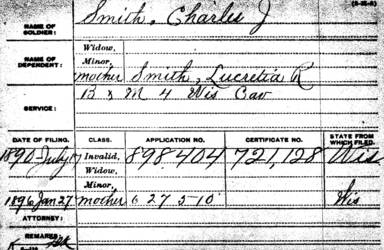 NAME OF SOLDIER: Smith, Charles J
NAME OF DEPENDENT: Widow,
Minor,
mother Smith, Lucretia R
SERVICE: B & M 4 Wis Cav
DATE OF FILING. CLASS. APPLICATION NO. CERTIFICATE NO. STATE FROM WHICH FILED.
1890 July 17 Invalid, 898,404 721,128 Wis.
Widow,
Minor,
1896 Jan 27 mother 627510 Wis
ATTORNEY:
REMARKS: